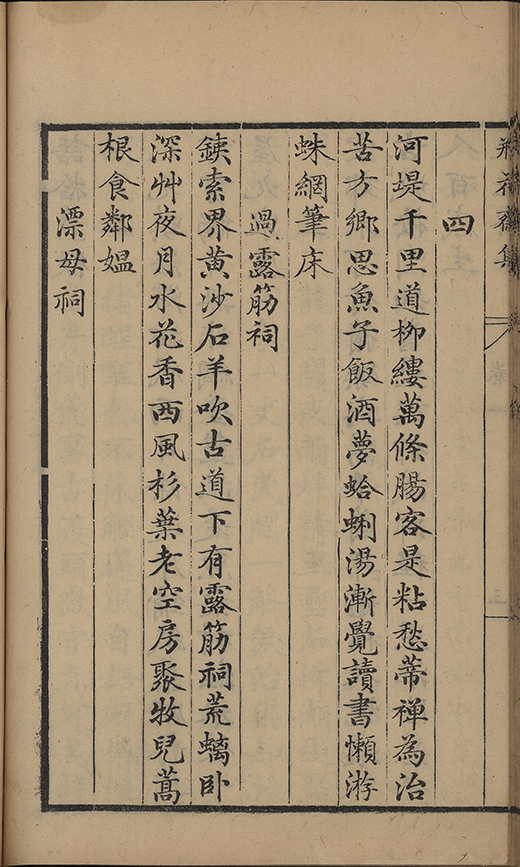 四
河堤千里道栁縷萬條腸客是粘愁蒂禅為治
苦方鄉思魚子飯酒夢蛤蜊湯漸覺讀書懶㳺
蛛網筆床
過露筋祠
鐵索界黄沙石羊吹古道下有露筋祠荒螭卧
深艸夜月水花香西風杉葉老空房聚牧兒蒿
根食鄰媪
漂母祠